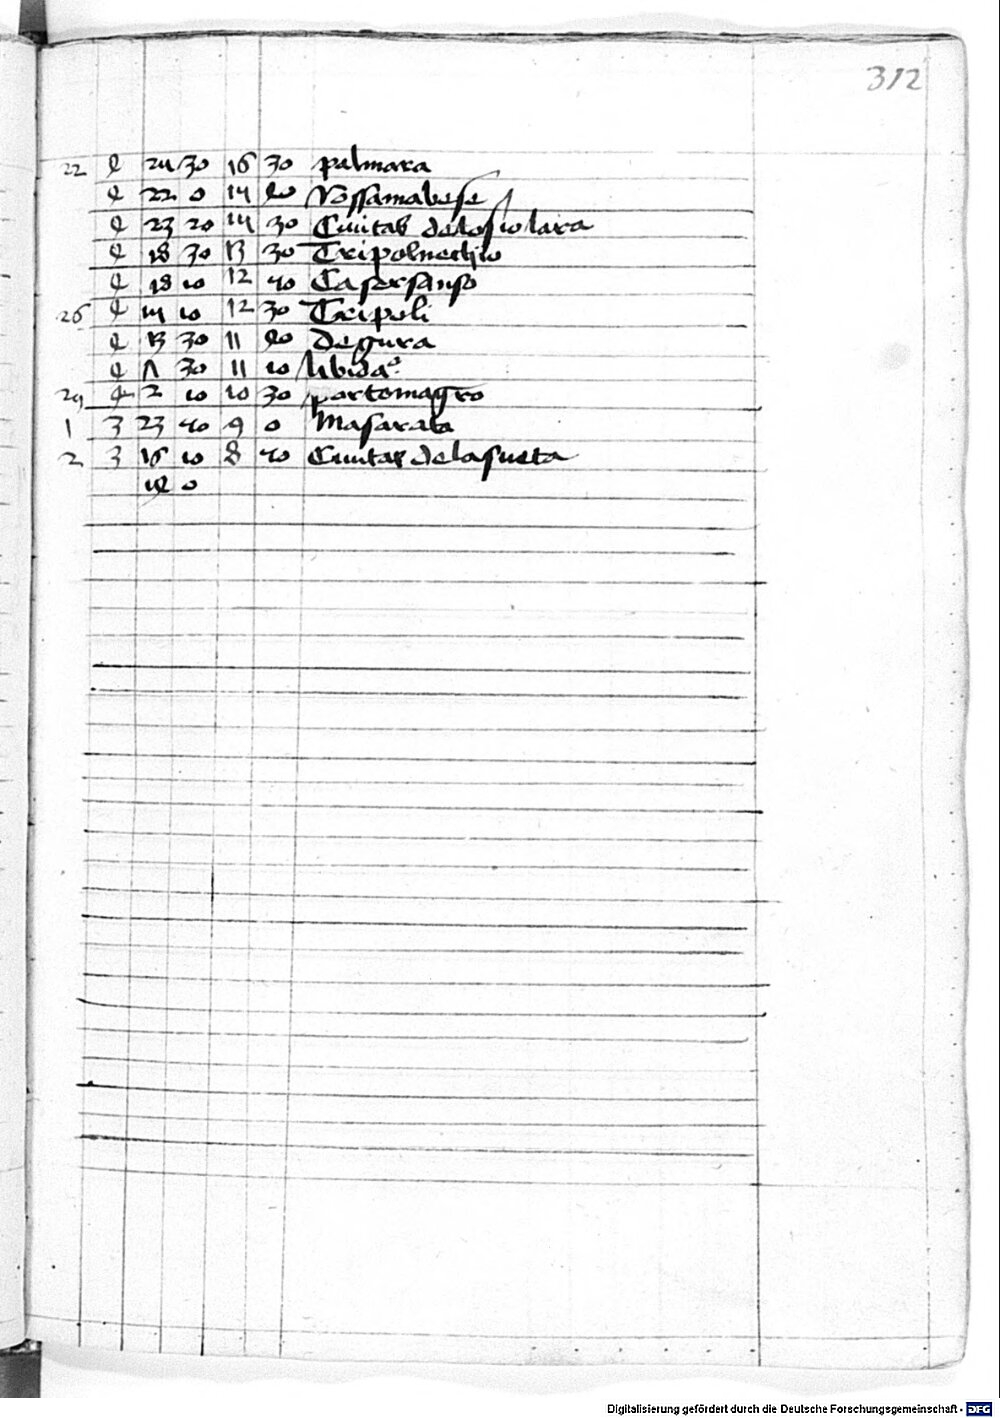 312
22 4 24 30 16 30 palmara
4 22 0 14 20 Vssamabese
4 23 20 14 30 Ciuitas delosiolara
4 18 30 13 30 Tripoluechio
4 18 10 12 40 Casarsanso
26 4 14 10 12 30 Tripoli
4 13 30 11 20 degura
4 11 30 11 10 libida
29 4 2 10 10 30 portomagro
1 3 23 40 9 0 Masarata
2 3 16 10 8 40 Ciuitas delasueta
0
Digitalisierung gefördert durch die Deutsche Forschungsgemeinschaft - DFG